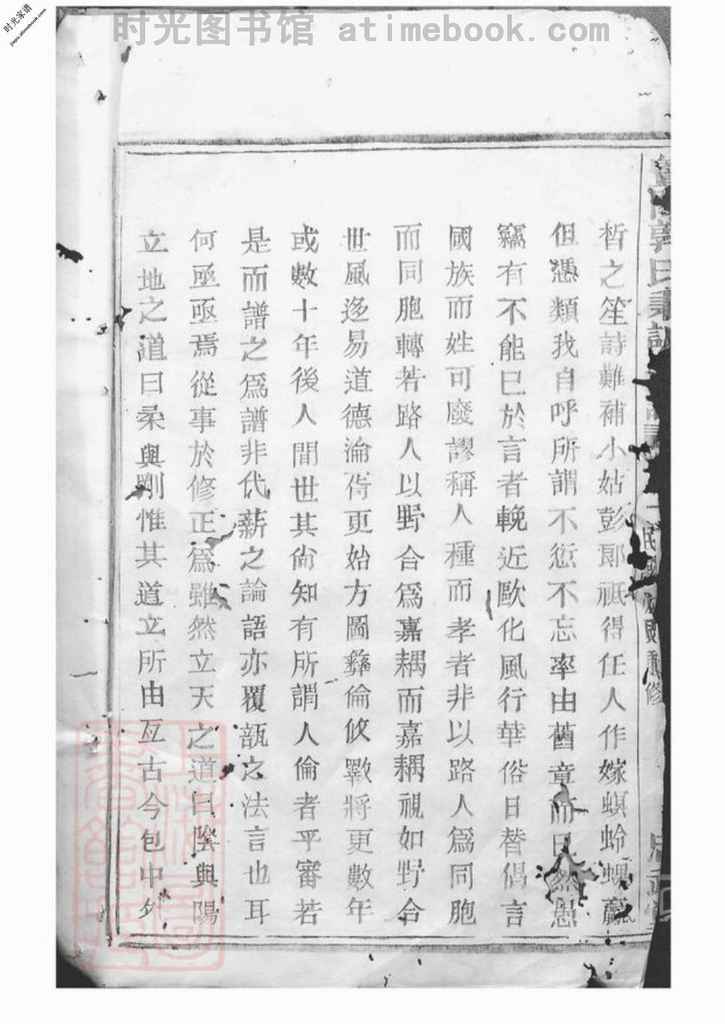 时光图书馆 atimebook.com
时光家谱
晳之笙詩難補小姑彭郞祗得任人作嫁螟蛉蜾蠃
但憑類我自呼所謂不愆不忘率由舊章而已然愚
竊有不能已於言者輓近歐化風行華俗日替倡言
國族而姓可廢謬稱人種而孝者非以路人爲同胞
而同胞轉若路人以野合爲嘉耦而嘉耦視如野合
世風迻易道德淪胥更始方圖彝倫攸斁將更數年
或數十年後人間世其尙知有所謂人倫者乎審若
是而譜之爲譜非代薪之論語亦覆瓿之法言也耳
何亟亟焉從事於修正爲雖然立天之道曰陰與陽
立地之道曰柔與剛惟其道立所由亙古今包中外